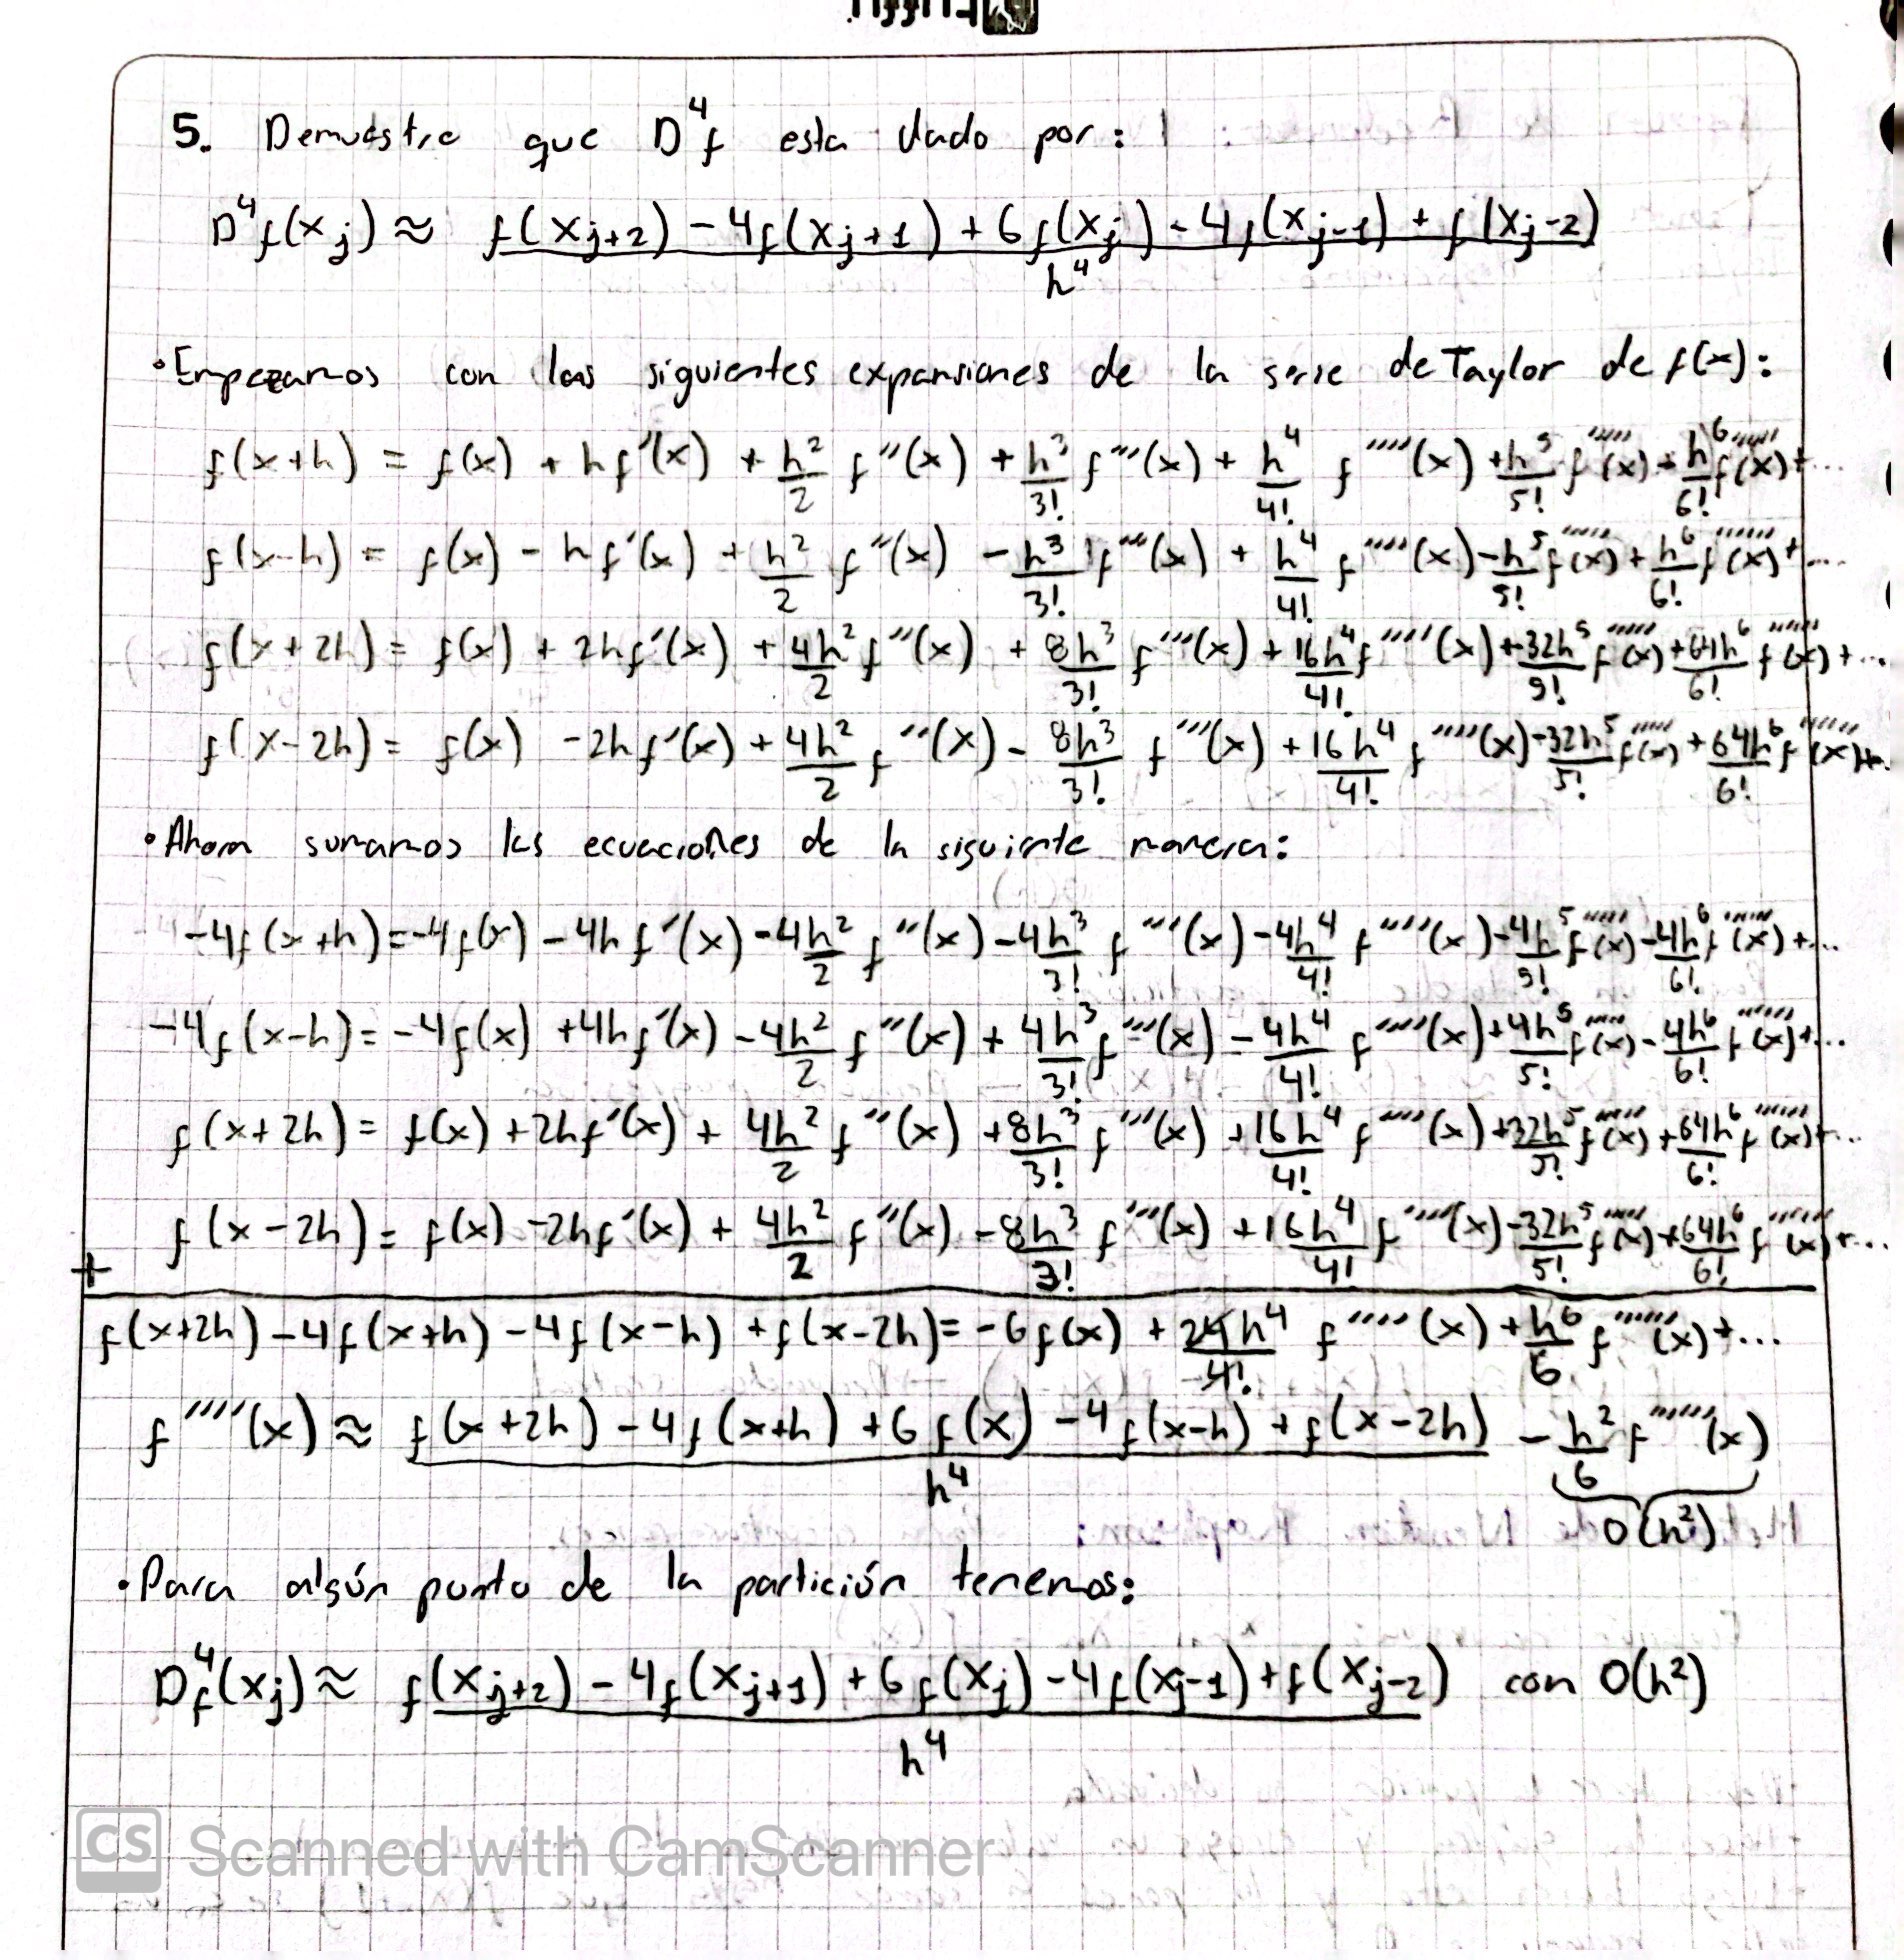 5. Demuestre que D⁴f esta dado por:
D⁴f(xj) ≈ f(xj+2) - 4f(xj+1) + 6f(xj) - 4f(xj-1) + f(xj-2) / h⁴
• Empezamos con las siguientes expansiones de la serie de Taylor de f(x):
f(x+h) = f(x) + hf'(x) + h²/2 f''(x) + h³/3! f'''(x) + h⁴/4! f''''(x) + h⁵/5! f'''''(x) + h⁶/6! f''''''(x) + ...
f(x-h) = f(x) - hf'(x) + h²/2 f''(x) - h³/3! f'''(x) + h⁴/4! f''''(x) - h⁵/5! f'''''(x) + h⁶/6! f''''''(x) + ...
f(x+2h) = f(x) + 2hf'(x) + 4h²/2 f''(x) + 8h³/3! f'''(x) + 16h⁴/4! f''''(x) + 32h⁵/5! f'''''(x) + 64h⁶/6! f''''''(x) + ...
f(x-2h) = f(x) - 2hf'(x) + 4h²/2 f''(x) - 8h³/3! f'''(x) + 16h⁴/4! f''''(x) - 32h⁵/5! f'''''(x) + 64h⁶/6! f''''''(x) + ...
• Ahora sumamos las ecuaciones de la siguiente manera:
-4f(x+h) = -4f(x) - 4hf'(x) - 4h²/2 f''(x) - 4h³/3! f'''(x) - 4h⁴/4! f''''(x) - 4h⁵/5! f'''''(x) - 4h⁶/6! f''''''(x) + ...
-4f(x-h) = -4f(x) + 4hf'(x) - 4h²/2 f''(x) + 4h³/3! f'''(x) - 4h⁴/4! f''''(x) + 4h⁵/5! f'''''(x) - 4h⁶/6! f''''''(x) + ...
f(x+2h) = f(x) + 2hf'(x) + 4h²/2 f''(x) + 8h³/3! f'''(x) + 16h⁴/4! f''''(x) + 32h⁵/5! f'''''(x) + 64h⁶/6! f''''''(x) + ...
+ f(x-2h) = f(x) - 2hf'(x) + 4h²/2 f''(x) - 8h³/3! f'''(x) + 16h⁴/4! f''''(x) - 32h⁵/5! f'''''(x) + 64h⁶/6! f''''''(x) + ...
f(x+2h) - 4f(x+h) - 4f(x-h) + f(x-2h) = -6f(x) + 24h⁴/4! f''''(x) + h⁶/6 f''''''(x) + ...
f''''(x) ≈ f(x+2h) - 4f(x+h) + 6f(x) - 4f(x-h) + f(x-2h) / h⁴ - h²/6 f''''''(x)
O(h²)
• Para algún punto de la partición tenemos:
D⁴f(xj) ≈ f(xj+2) - 4f(xj+1) + 6f(xj) - 4f(xj-1) + f(xj-2) / h⁴ con O(h²)
CS Scanned with CamScanner